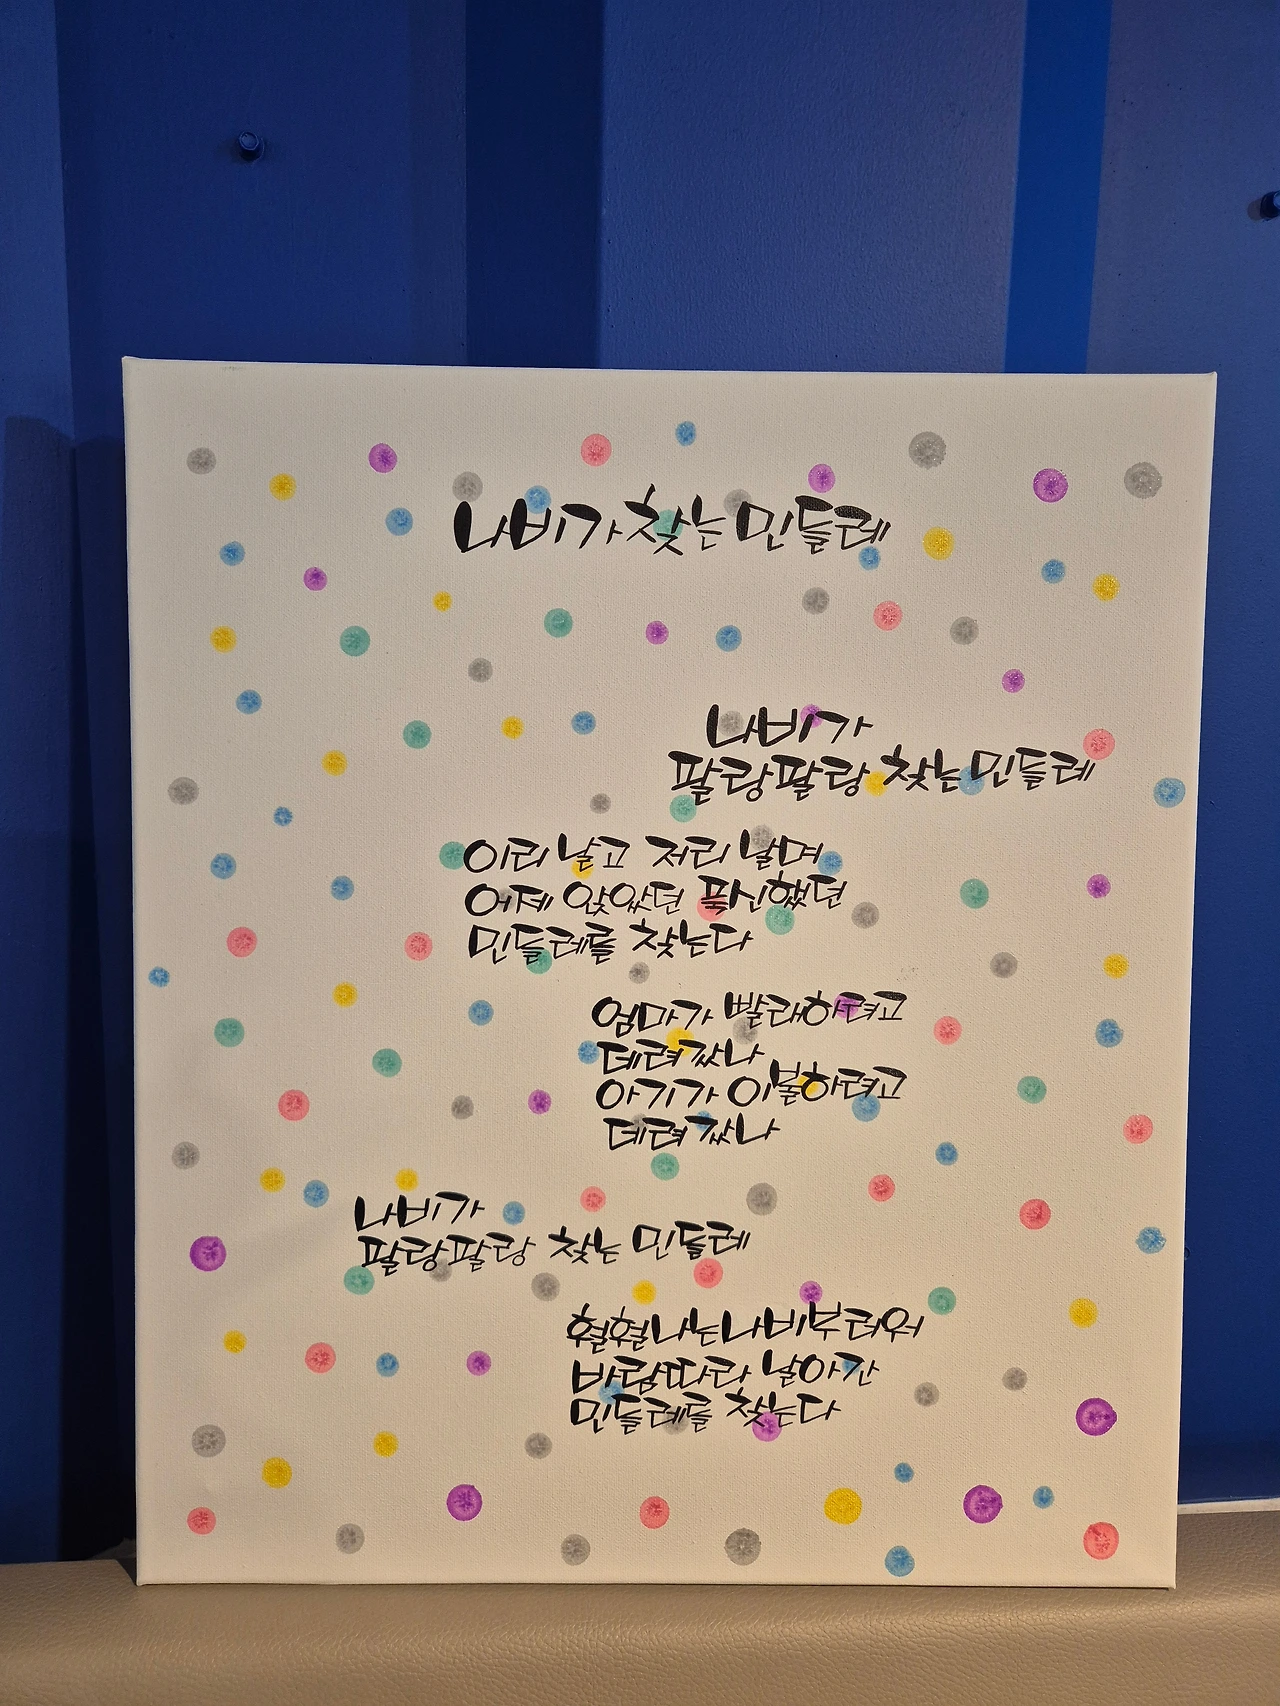 나비가 찾는 민들레
나비가
팔랑팔랑 찾는 민들레
이리 날고 저리 날며
어제 앉았던 푹신했던
민들레를 찾는다
엄마가 빨래하려고
데려갔나
아기가 이불하려고
데려갔나
나비가
팔랑팔랑 찾는 민들레
훨훨 나는 나비 부러워
바람따라 날아간
민들레를 찾는다